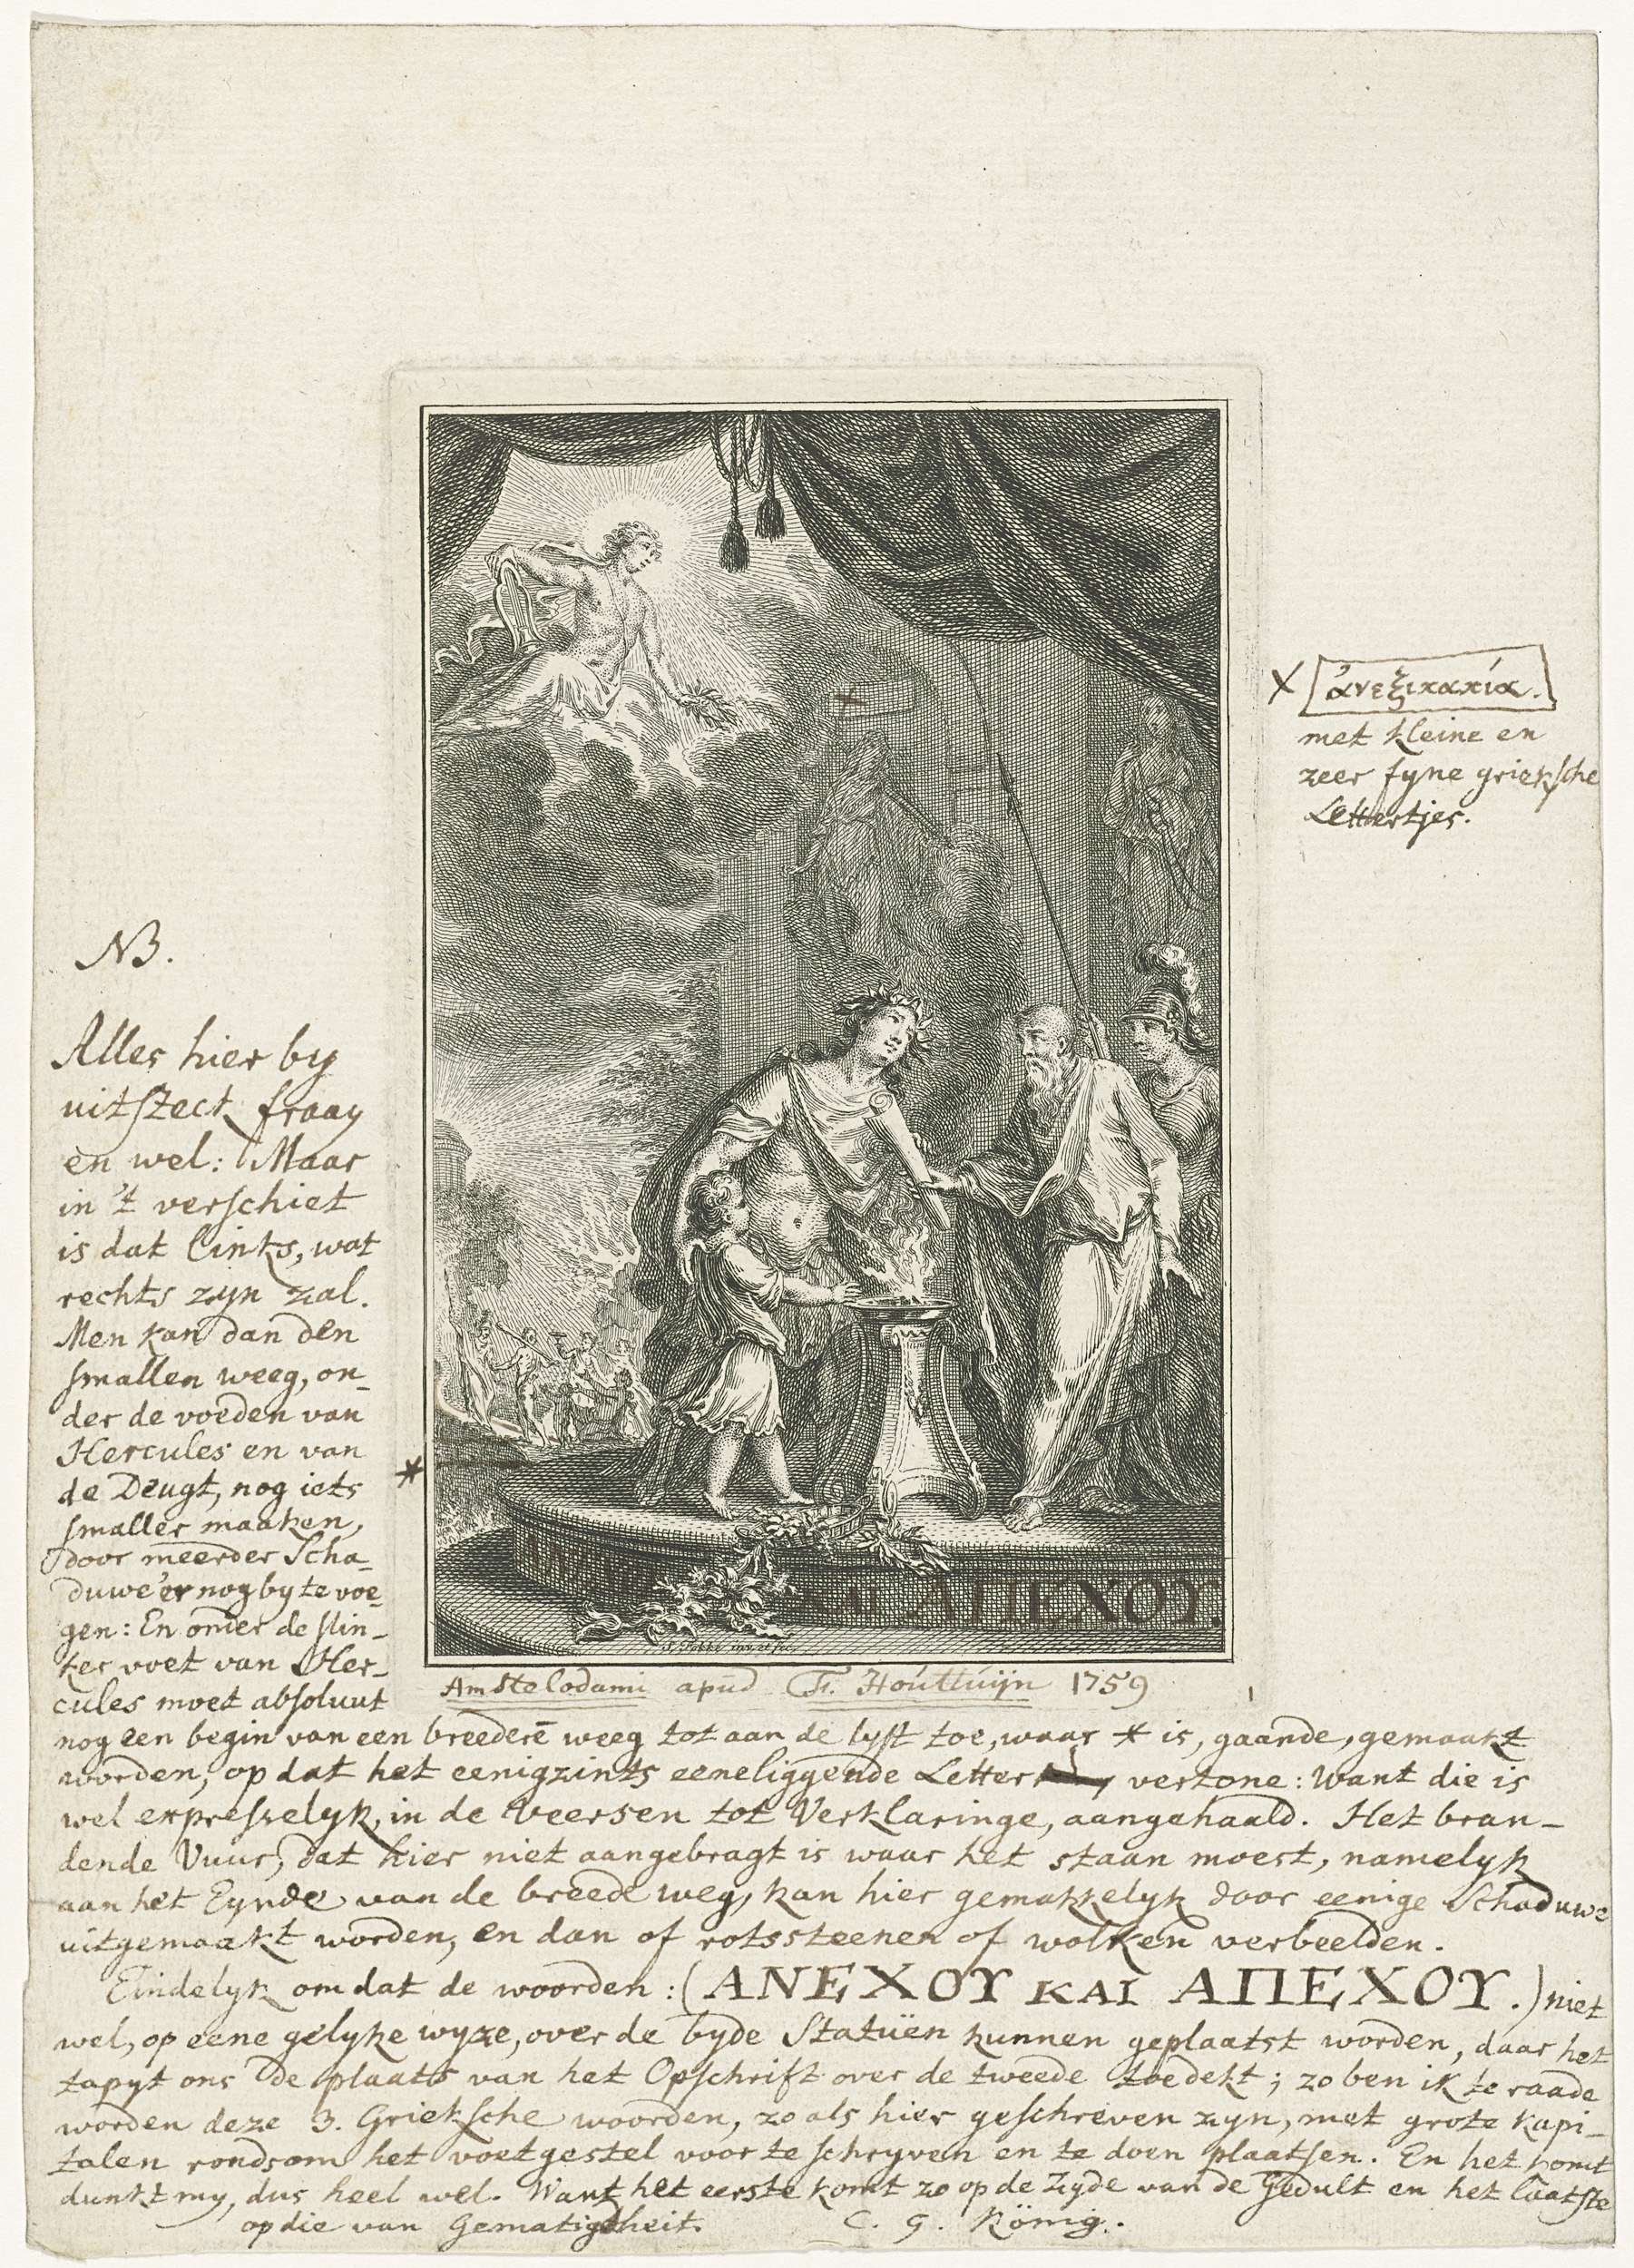 X ἀνεξικακία.
met kleine en
zeer fyne grieksche
Lettertjes.
NB.
Alles hier by
uitsteck fraay
en wel: Maar
in 't verschiet
is dat links, wat
rechts zyn zal.
Men kan dan den
smallen weeg, on-
der de voeden van
Hercules en van
de Deugt, nog iets
smaller maaken,
door meerder Scha-
duwe 'er nog by te voe-
gen: En onder de slin-
ker voet van Her-
cules moet absoluut
ΚΑΙ ΑΠΕΧΟΥ.
S. Fokke inv. et fec.
Amstelodami apud F. Houttuijn 1759
nog een begin van een breedere weeg tot aan de lyst toe, waar * is, gaande, gemaakt
worden, op dat het eenigzints eene liggende Letter y vertone: Want die is
wel expresselyk, in de Veersen tot Verklaringe, aangehaald. Het bran-
dende Vuur, dat hier niet aangebragt is waar het staan moest, namelyk
aan het Eynde van de breede weg, kan hier gemakkelyk door eenige Schaduwe
uitgemaakt worden, en dan of rotssteenen of wolken verbeelden.
Eindelyk omdat de woorden: (ΑΝΕΧΟΥ ΚΑΙ ΑΠΕΧΟΥ.) niet
wel, op eene gelyke wyze, over de byde Statuën kunnen geplaatst worden, daar het
tapyt ons de plaats van het Opschrift over de tweede toedekt; zo ben ik te raade
worden deze 3. Grieksche woorden, zo als hier geschreven zyn, met grote kapi-
talen rondsom het voetgestel voor te schryven en te doen plaatsen. En het komt
dunkt my, dus heel wel. Want het eerste komt zo op de Zyde van de Gedult en het laatste
op die van Gematigtheit. C. G. König.